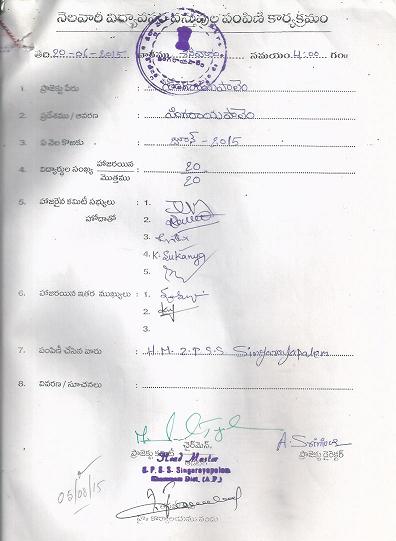 నెలవారి విద్యావసర వస్తువుల పంపిణీ కార్యక్రమం
తేది. 20-06-2015 సమయం. 4:00 గం॥
1. ప్రాజెక్టు పేరు : సింగరాయపాలెం
2. ప్రదేశము / ఆవరణ : సింగరాయపాలెం
3. ఏ నెల కొఱకు : జూన్ - 2015
4. విద్యార్థుల సంఖ్య హాజరయిన : 20
మొత్తము 20
5. హాజరైన కమిటీ సభ్యులు : 1.
హోదాతో 2.
3.
4. K. Sukanya
5.
6. హాజరయిన ఇతర ముఖ్యులు : 1.
2.
3.
7. పంపిణీ చేసిన వారు : H.M. Z.P.S.S Singarayapalem
8. వివరణ / సూచనలు :
ఛైర్మెన్,
ప్రాజెక్టు కమిటీ
A. Srinivas
ప్రాజెక్టు డైరెక్టర్
Head Master
Z. P. S. S. Singarayapalem
Khammam Dist. (A.P.)
05/08/15